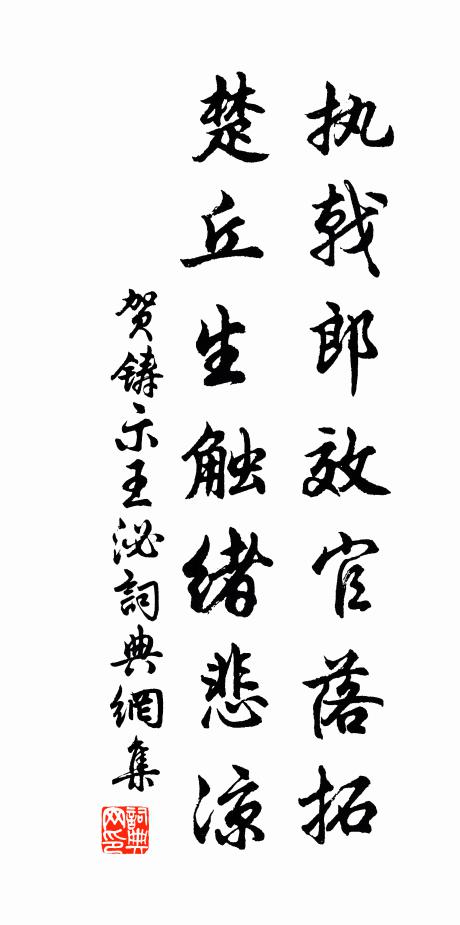 执戟郎效官落拓
楚丘生触绪悲凉
贺铸示王泌詞典網集
詞典网印